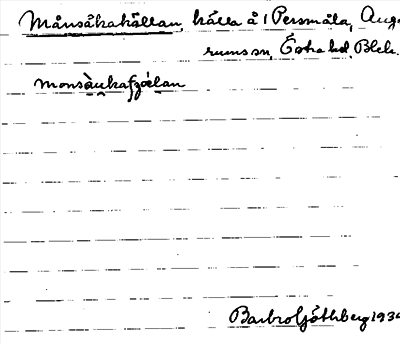 Månsåkakällan, källa å 1 Persmåla, Aug
rums sn, Östra hd, Blek.
monsåukafzélan
Barbro Göthberg 193